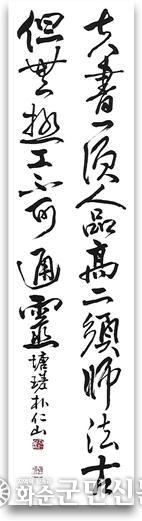 書一須人品高二須師法古
但無極工不可通靈
朴仁山
화순군민신문